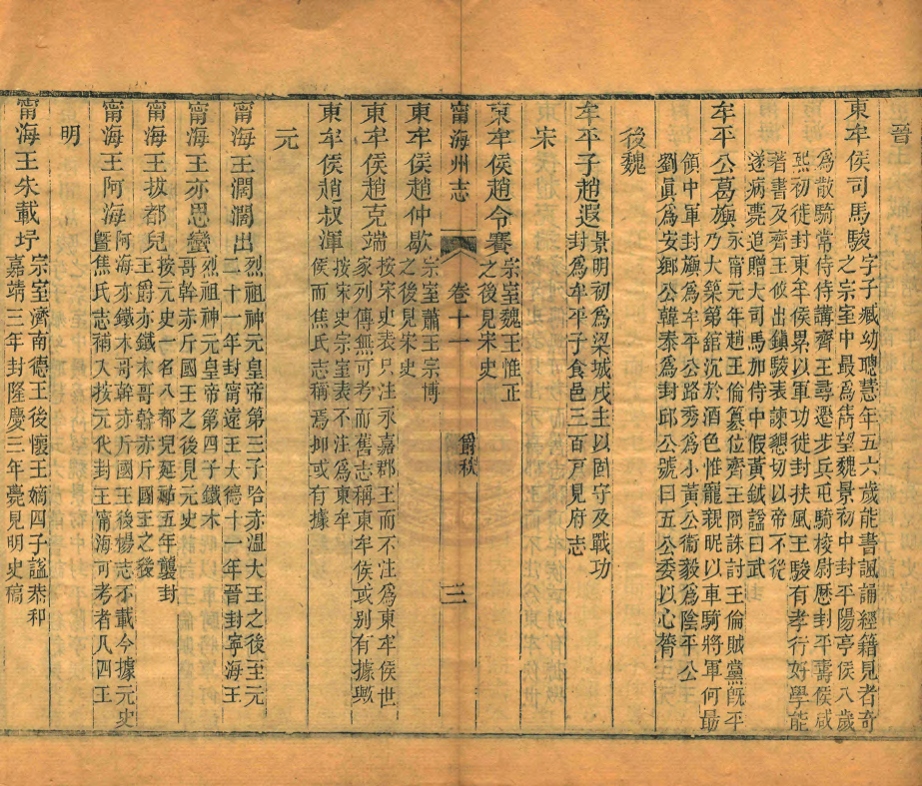 晉
東牟侯司馬駿字子臧幼聰慧年五六歲能書諷誦經籍見者奇
之宗室中最爲雋望魏景初中封平陽亭侯八歲
爲散騎常侍侍講齊王尋遷步兵屯騎校尉歷封平壽侯咸
熙初徙封東牟侯累以軍功徙封扶風王駿有孝行好學能
著書及齊王攸出鎭駿表諫懇切以帝不從
遂病薨追贈大司馬加侍中假黃鉞諡曰武
牟平公葛旟永甯元年趙王倫篡位齊王冏誅討王倫賊黨旣平
乃大築第舘沉於酒色惟寵親昵以車騎將軍何勗
領中軍封旟爲牟平公路秀爲小黃公衞毅爲陰平公
劉眞爲安鄉公韓泰爲封邱公號曰五公委以心膂
後魏
牟平子趙遐景明初爲梁城戍主以固守及戰功
封爲牟平子食邑三百戶見府志
宋
東牟侯趙令賽宗室魏王惟正
之後見宋史
甯海州志
卷十一
爵秩
三
東牟侯趙仲歇宗室蕭王宗博
之後見宋史
東牟侯趙克端按宋史表只注永嘉郡王而不注爲東牟侯世
家列傳無可考而舊志稱東牟侯或别有據歟
東牟侯趙叔渾按宋史宗室表不注爲東牟
侯而焦氏志稱焉抑或有據
元
甯海王濶濶出烈祖神元皇帝第三子哈赤溫大王之後至元
二十一年封甯遠王大德十一年晉封寧海王
甯海王亦思蠻烈祖神元皇帝第四子鐵木
哥斡赤斤國王之後見元史
甯海王拔都兒按元史一名八都兒延祐五年襲封
王爵亦鐵木哥斡赤斤國王之後
甯海王阿海阿海亦鐵木哥斡亦斤國王後楊志不載今據元史
曁焦氏志補入按元代封王甯海可考者凡四王
明
甯海王朱載㘾宗室濟南德王後懷王嫡四子諡恭和
嘉靖三年封隆慶三年薨見明史稿